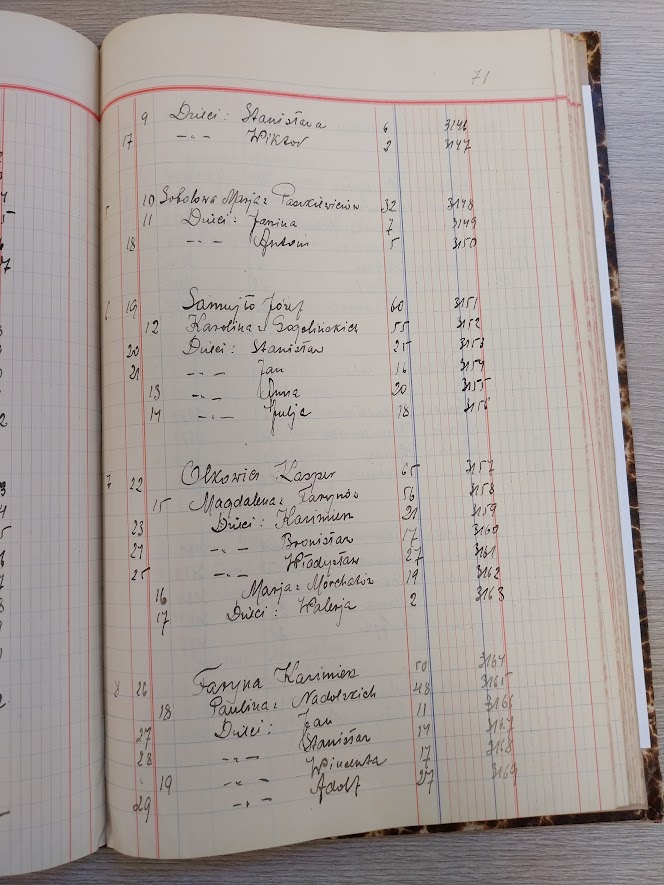 71
9 Dzieci: Stanisława 6 3146
17 -"- Wiktor 2 3147
10 Sobolowa Marja z Paszkiewiczów 32 3148
11 Dzieci: Janina 7 3149
18 -"- Antoni 5 3150
6 19 Samujło Józef 60 3151
12 Karolina z Gogolińskich 55 3152
20 Dzieci: Stanisław 25 3153
21 -"- Jan 16 3154
13 -"- Anna 20 3155
14 -"- Julja 18 3156
7 22 Ołkowicz Kasper 65 3157
15 Magdalena z Farynów 56 3158
23 Dzieci: Kazimierz 21 3159
24 -"- Bronisław 17 3160
25 -"- Władysław 27 3161
16 Marja z 19 3162
17 Dzieci: Walerja 2 3163
8 26 Faryna Kazimierz 50 3164
18 Paulina z Nadolskich 48 3165
27 Dzieci: Jan 11 3166
28 -"- Stanisław 14 3167
19 -"- Wincenta 17 3168
29 -"- Adolf 27 3169